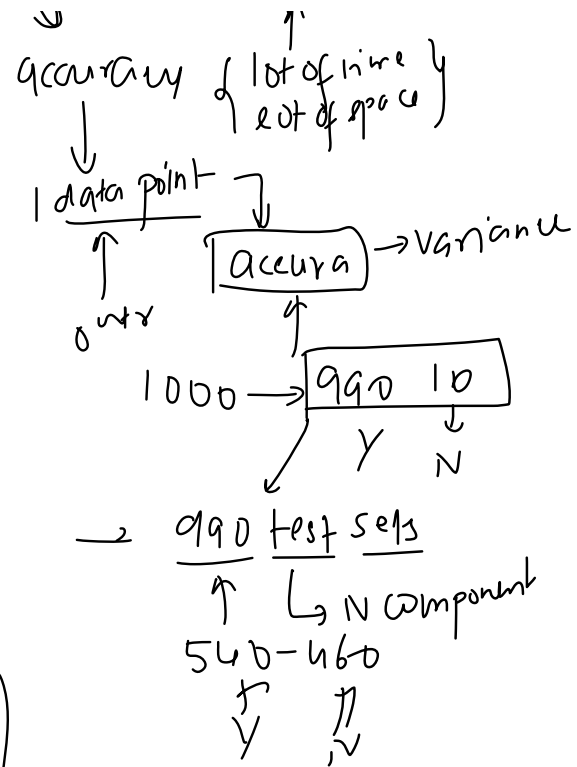 accuracy { lot of time
lot of space }
1 data point
accura → variance
outr
1000 → 990 10
Y N
990 test sets
N component
540-460
Y N